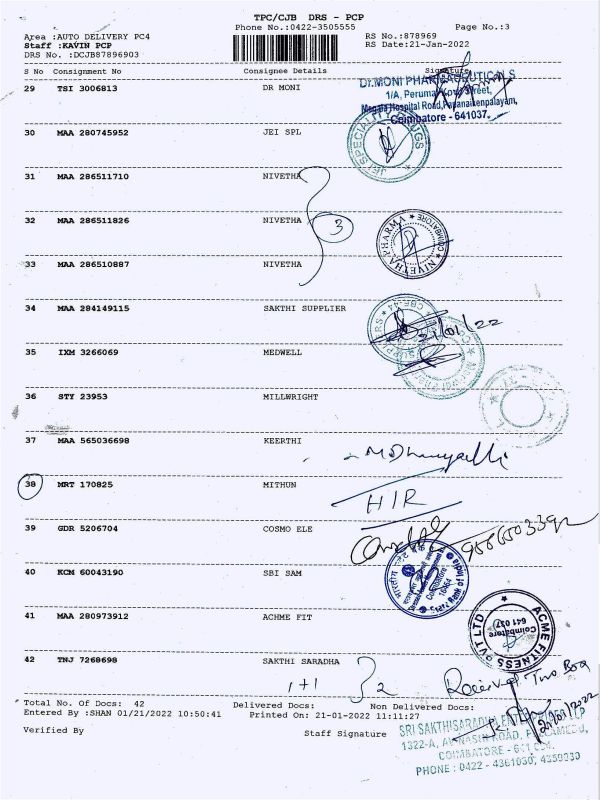 TPC/CJB DRS - PCP
Phone No.:0422-3505555 Page No.:3
Area :AUTO DELIVERY PC4 RS No.:878969
Staff :KAVIN PCP RS Date:21-Jan-2022
DRS No. :DCJB87896903
S No Consignment No Consignee Details Signature
29 TSI 3006813 DR MONI
Dr.MONI PHARMACEUTICALS
1/A, Perumal Kovil Street,
Hospital Road, Papanaikenpalayam,
Coimbatore - 641037.
30 MAA 280745952 JEI SPL
JEI SPECIALITY DRUGS
31 MAA 286511710 NIVETHA
32 MAA 286511826 NIVETHA 3
33 MAA 286510887 NIVETHA
NIVETHA PHARMA COIMBATORE
34 MAA 284149115 SAKTHI SUPPLIER
21/01/22
35 IXM 3266069 MEDWELL
36 STY 23953 MILLWRIGHT
37 MAA 565036698 KEERTHI
38 MRT 170825 MITHUN
H/R
39 GDR 5206704 COSMO ELE
40 KCM 60043190 SBI SAM
State Bank of India
Coimbatore
41 MAA 280973912 ACHME FIT
ACME FITNESS PVT LTD
Coimbatore
641 037
42 TNJ 7268698 SAKTHI SARADHA
1+1 2 Received Two Box
Total No. Of Docs: 42 Delivered Docs: Non Delivered Docs:
Entered By :SHAN 01/21/2022 10:50:41 Printed On: 21-01-2022 11:11:27
21/01/2022
Verified By Staff Signature
SRI SAKTHISARADHA ENTERPRISES LLP
1322-A, AVINASHI ROAD, PEELAMEDU,
COIMBATORE - 641 004.
PHONE : 0422 - 4361030, 4359030